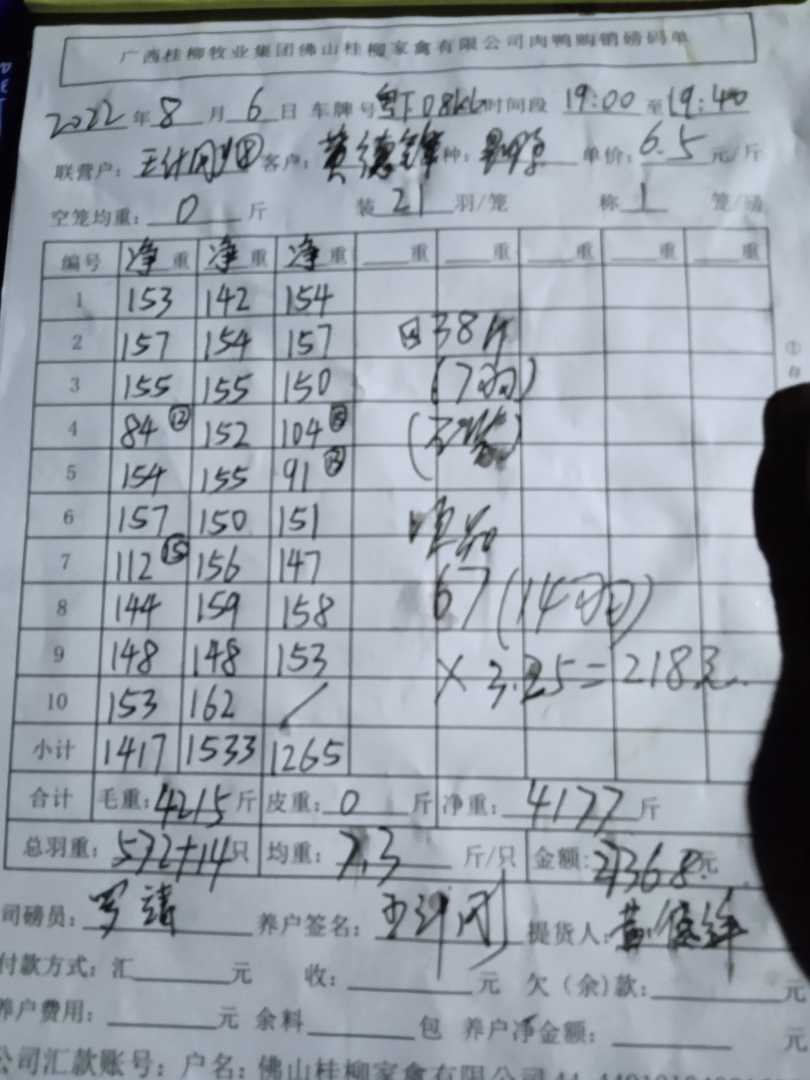 广西桂柳牧业集团佛山桂柳家禽有限公司肉鸭购销磅码单
2022 年 8 月 6 日 车牌号 时间段 19:00 至 19:40
联营户: 客户: 黄德锋 种: 单价: 6.5 元/斤
空笼均重: 0 斤 装 21 羽/笼 称 1 笼/磅
编号 净重 净重 净重 重 重 重 重 重
1 153 142 154
2 157 154 157 38斤
3 155 155 150 (7羽)
4 84 ⑫ 152 104
5 154 155 91
6 157 150 151
7 112 ⑮ 156 147
8 144 159 158 67 (14羽)
9 148 148 153 × 3.25 = 218元
10 153 162 /
小计 1417 1533 1265
合计 毛重: 4215 斤 皮重: 0 斤 净重: 4177 斤
总羽重: 572+14 只 均重: 7.3 斤/只 金额: 27368 元
司磅员: 罗靖 养户签名: 提货人: 黄德锋
付款方式: 汇 元 收: 元 欠(余)款: 元
养户费用: 元 余料 包 养户净金额: 元
公司汇款账号: 户名: 佛山桂柳家禽有限公司